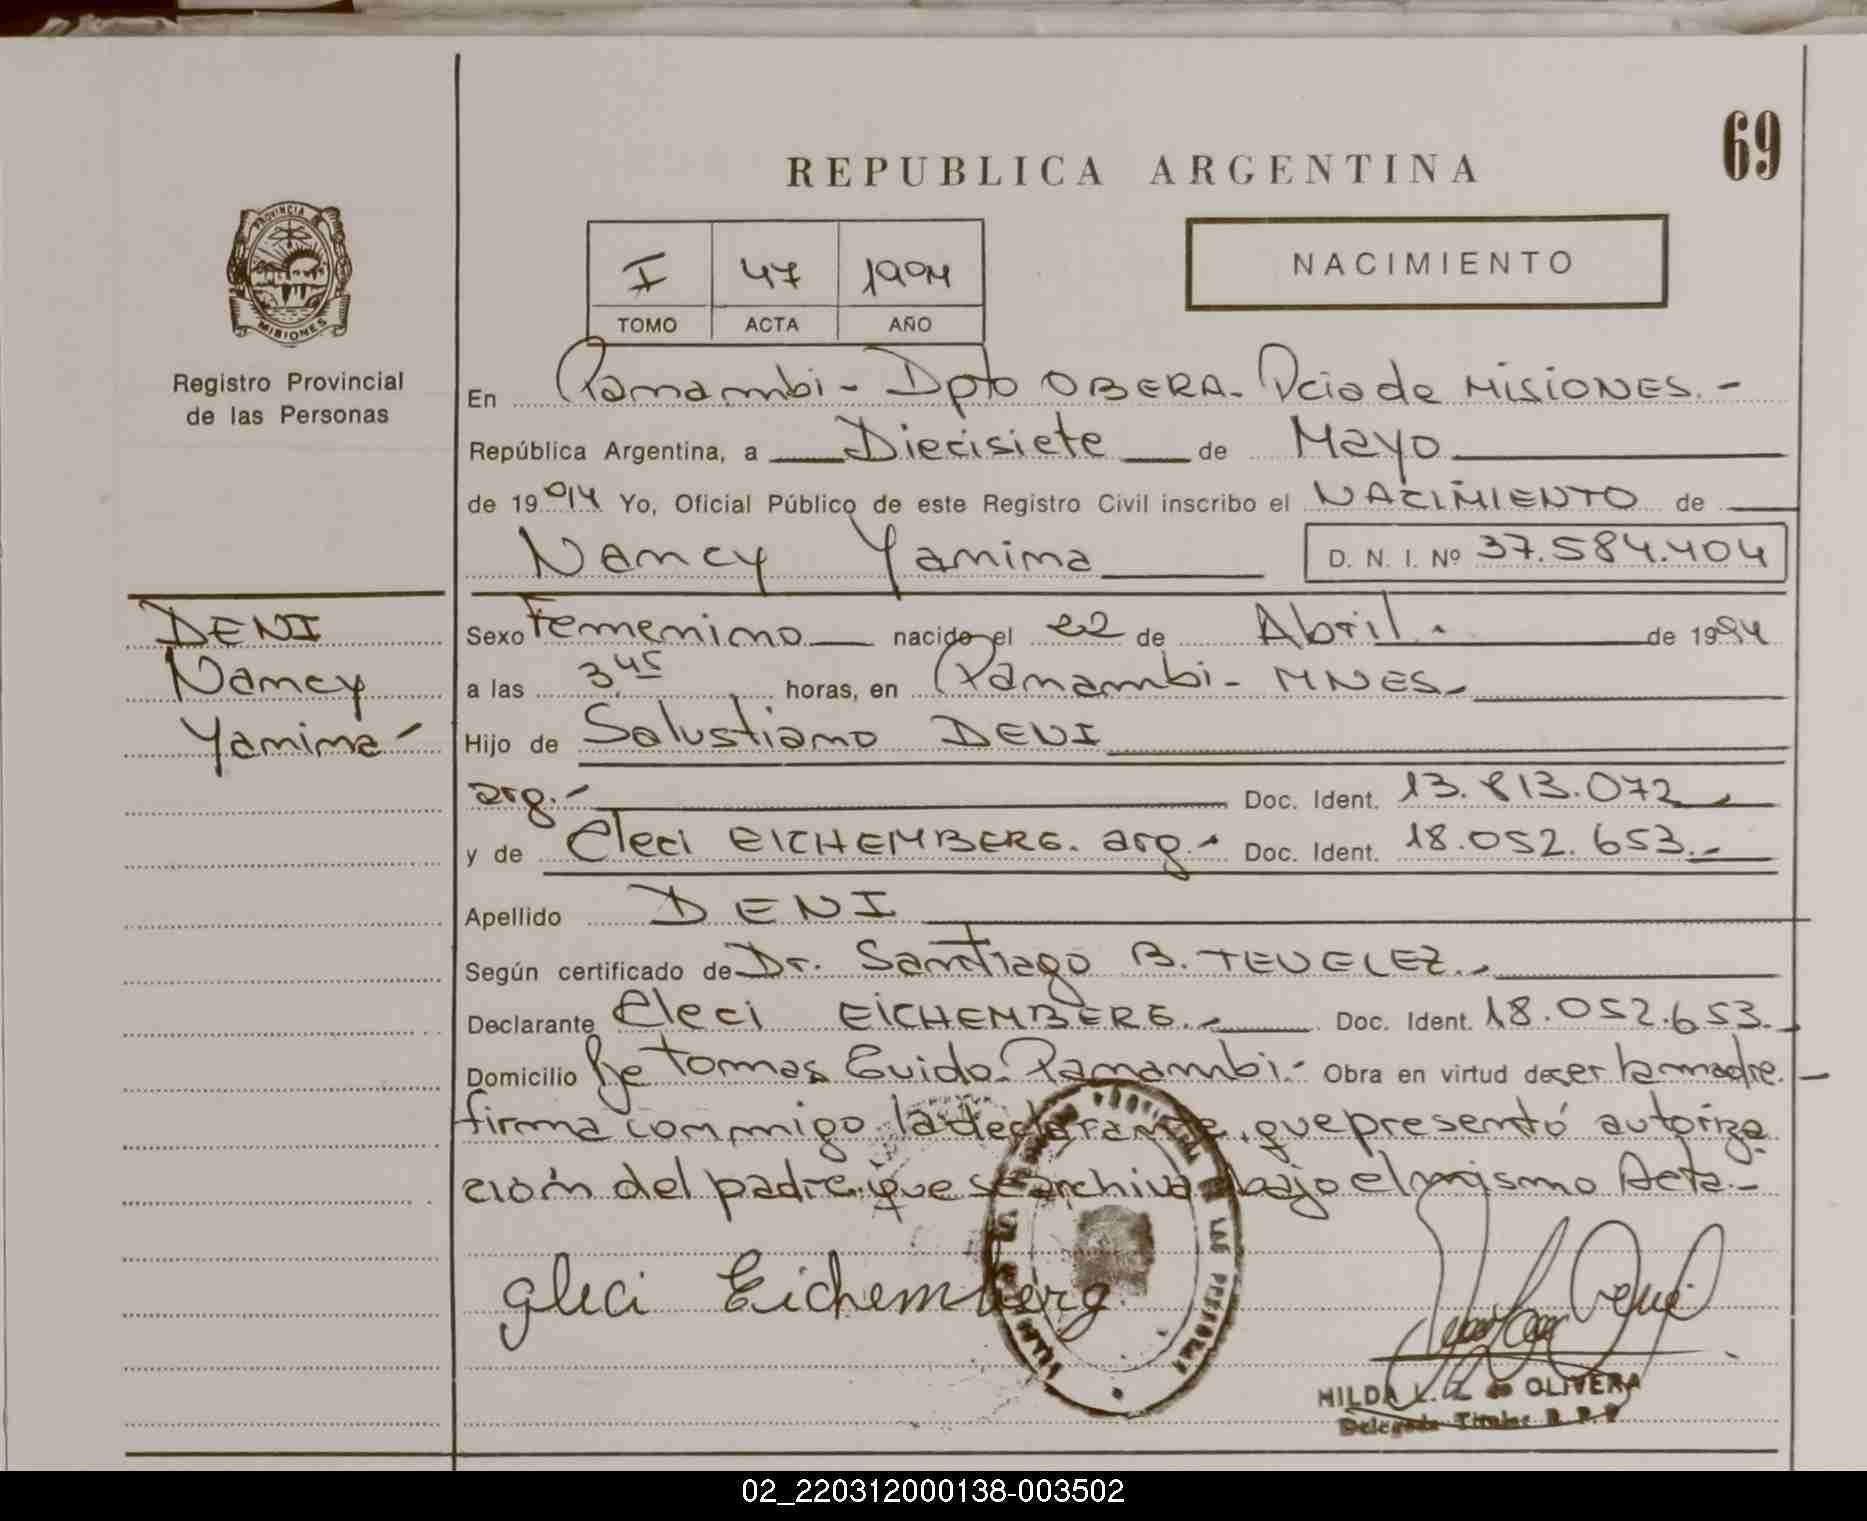 69
REPUBLICA ARGENTINA
PROVINCIA DE
MISIONES
Registro Provincial
de las Personas
I 47 1994
TOMO ACTA AÑO
NACIMIENTO
En Panambi - Dpto OBERA - Pcia de MISIONES. -
República Argentina, a Diecisiete de Mayo
de 1994 Yo, Oficial Público de este Registro Civil inscribo el NACIMIENTO de
Nancy Yanina D. N. I. Nº 37.584.404
DENI
Nancy
Yanina
Sexo Femenino nacido el 22 de Abril. de 1994
a las 3,45 horas, en Panambi - MNES.
Hijo de Salustiano DENI
arg. - Doc. Ident. 13.813.072
y de Cleci EICHEMBERG. arg. - Doc. Ident. 18.052.653.-
Apellido DENI
Según certificado de Dr. Santiago B. TEVELEZ.
Declarante Cleci EICHEMBERG. - Doc. Ident. 18.052.653.
Domicilio Pje Tomas Guido. Panambi.- Obra en virtud de ser la madre.
firma conmigo la declarante, que presentó autoriza
ción del padre, que se archiva bajo el mismo Acta.-
gleci Eichemberg
LAS PERSONAS
HILDA L. de OLIVERA
Delegada Titular R. P. P
02_220312000138-003502